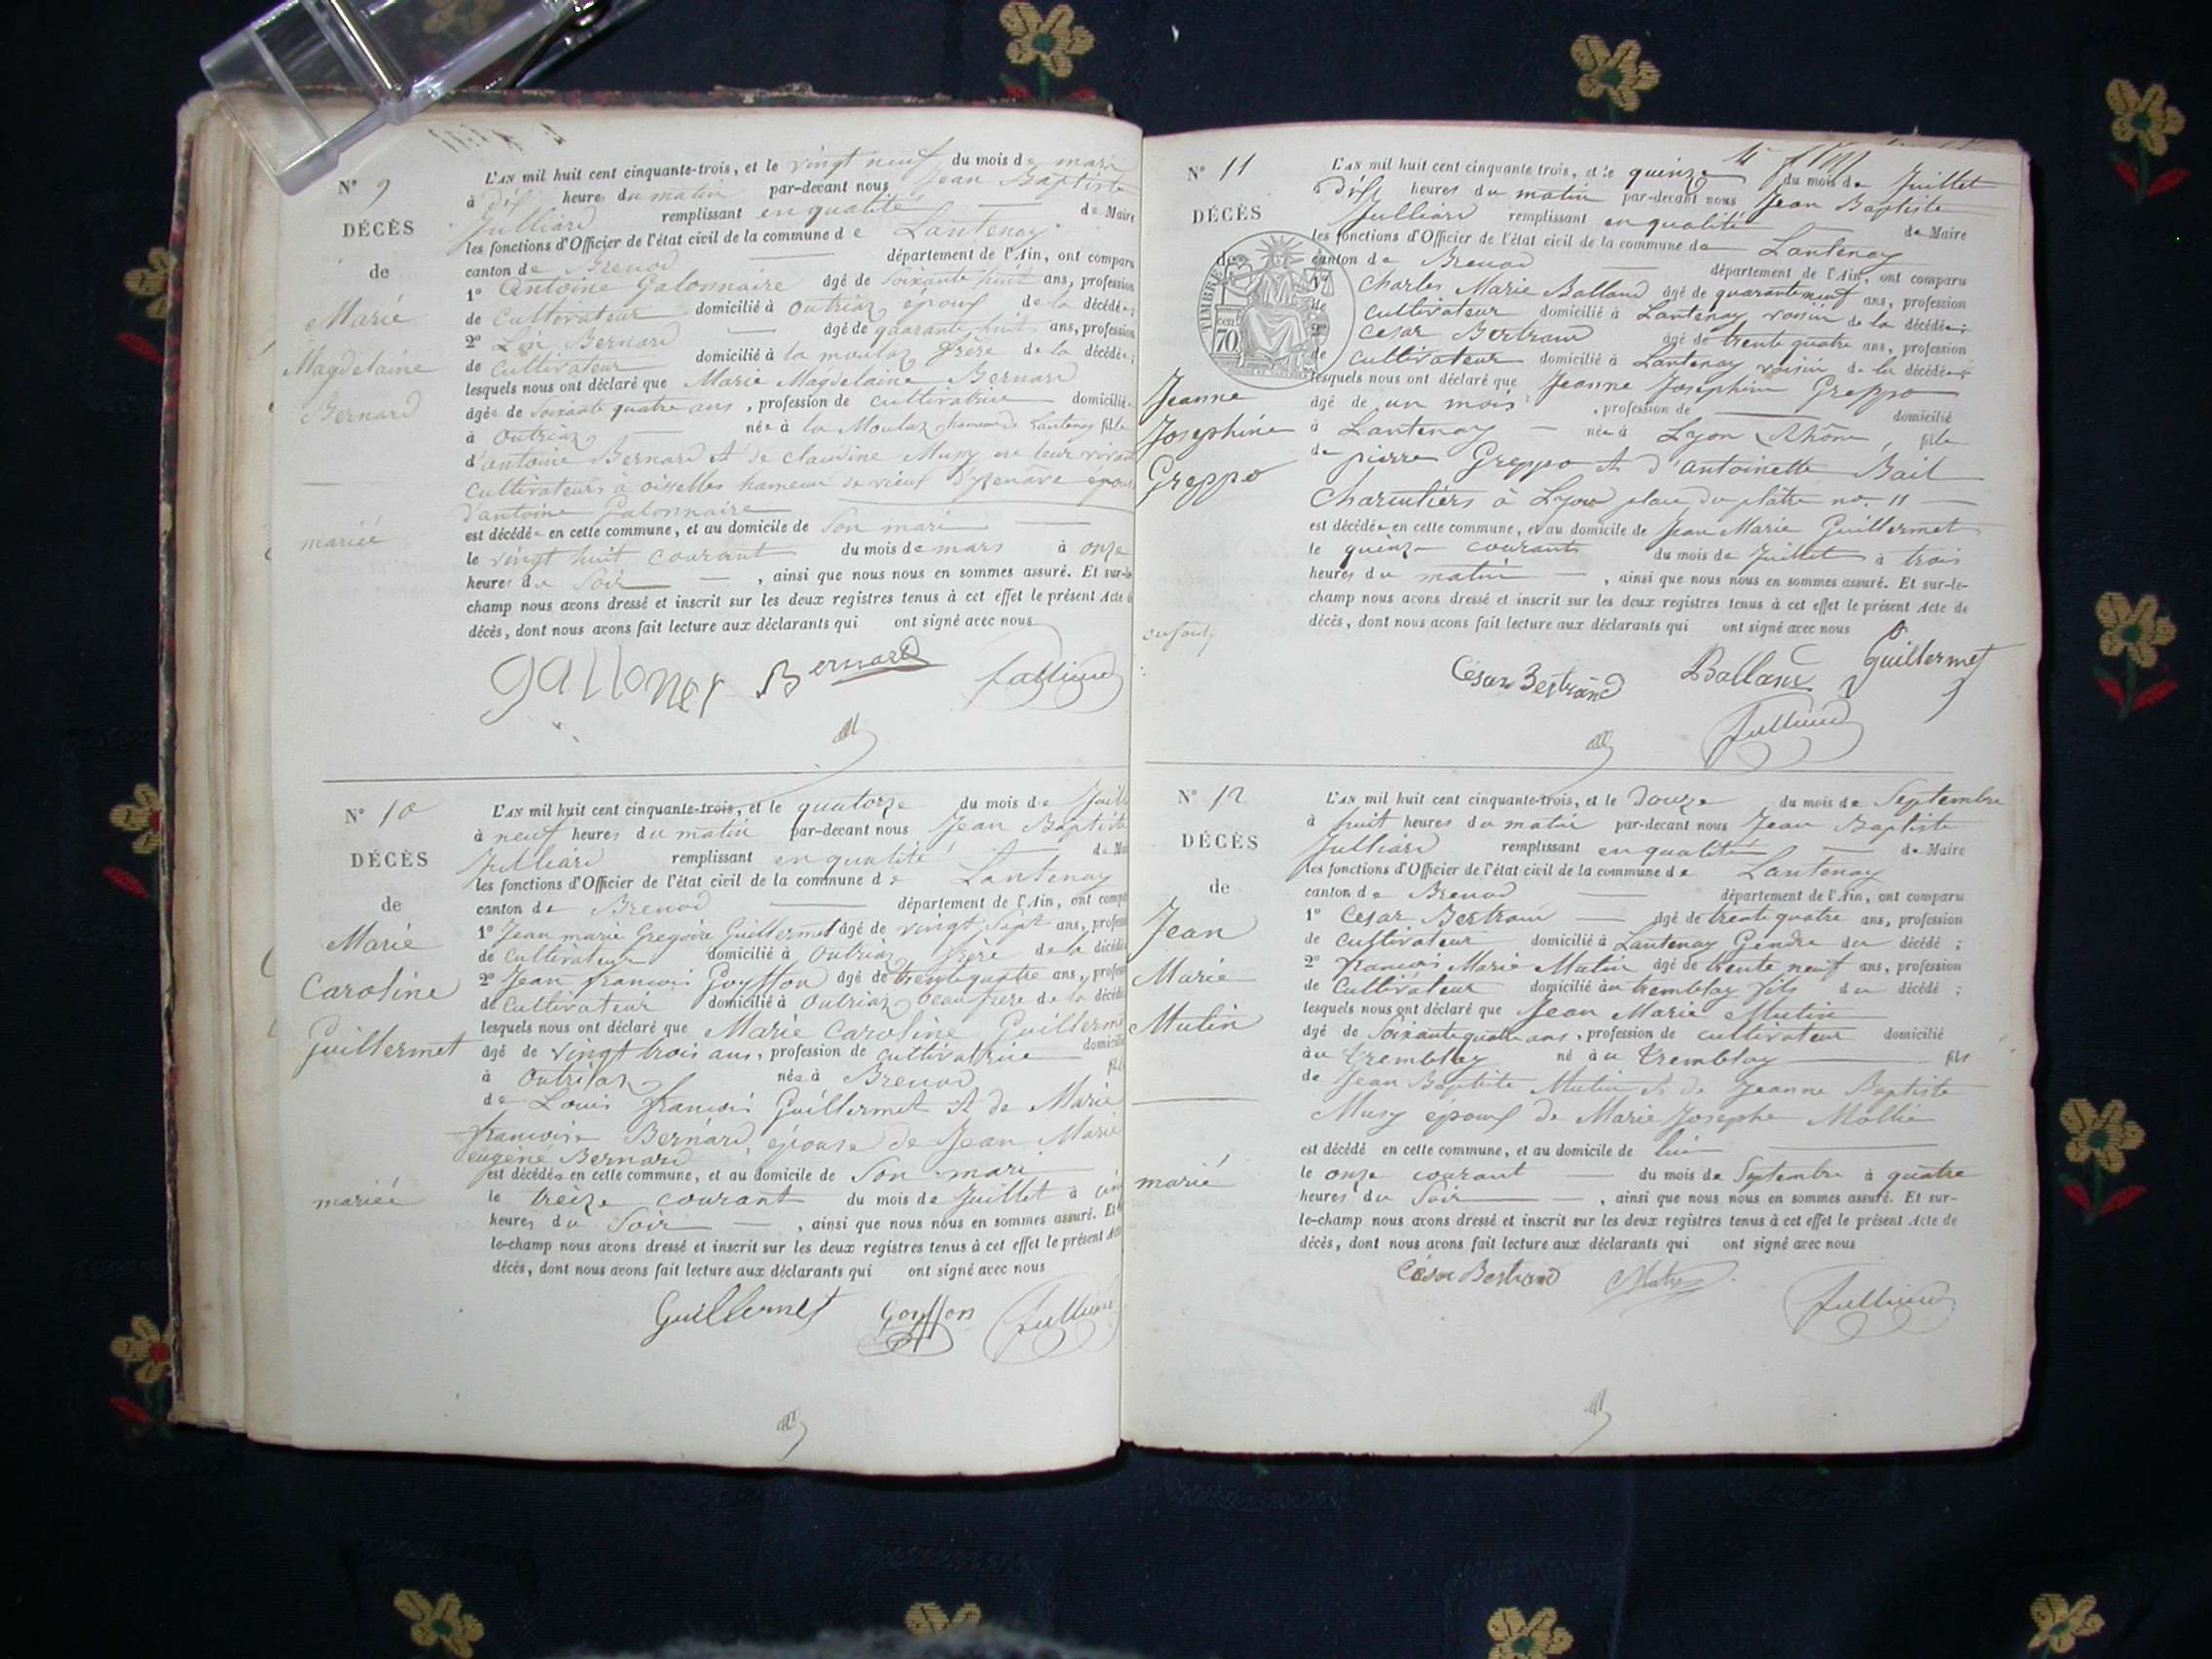 N° 9
DÉCÈS
de
Marie
Magdelaine
Bernard
mariée
L'AN mil huit cent cinquante-trois, et le vingt neuf du mois de mars
à dix heures du matin par-devant nous Jean Baptiste
Julliard remplissant en qualité de Maire
les fonctions d'Officier de l'état civil de la commune de Lantenay
canton de Brenod département de l'Ain, ont comparu
1° Antoine Galonnaire âgé de soixante huit ans, profession
de Cultivateur domicilié à Outriaz époux de la décédée;
2° Lin Bernard âgé de quarante huit ans, profession
de Cultivateur domicilié à la moulaz frère de la décédée;
lesquels nous ont déclaré que Marie Magdelaine Bernard
âgée de soixante quatre ans, profession de cultivatrice domiciliée
à Outriaz née à la Moulaz hameau de Lantenay fille
d'antoine Bernard et de claudine Musy en leur vivant
cultivateurs à oisselles hameau de vieux d'yzenave épouse
d'antoine Galonnaire
est décédée en cette commune, et au domicile de son mari
le vingt huit courant du mois de mars à onze
heures du soir, ainsi que nous nous en sommes assuré. Et sur-le-
champ nous avons dressé et inscrit sur les deux registres tenus à cet effet le présent Acte de
décès, dont nous avons fait lecture aux déclarants qui ont signé avec nous
gallones Bernard Julliard
N° 10
DÉCÈS
de
Marie
Caroline
Guillermet
mariée
L'AN mil huit cent cinquante-trois, et le quatorze du mois de Juill
à neuf heures du matin par-devant nous Jean Baptiste
Julliard remplissant en qualité de Mai
les fonctions d'Officier de l'état civil de la commune de Lantenay
canton de Brenod département de l'Ain, ont compa
1° Jean marie Gregoire Guillermet âgé de vingt sept ans, profess
de Cultivateur domicilié à Outriaz frère de la décédé
2° Jean francois Goyffon âgé de trente quatre ans, profess
de Cultivateur domicilié à Outriaz beau frère de la décédé
lesquels nous ont déclaré que Marie Caroline Guillerme
âgé de vingt trois ans, profession de cultivatrice domicilié
à Outriaz née à Brenod fille
de Louis francois Guillermet et de Marie
francoise Bernard, épouse de Jean Marie
eugène Bernard
est décédée en cette commune, et au domicile de Son mari
le treize courant du mois de Juillet à cinq
heures du Soir, ainsi que nous nous en sommes assuré. Et
le-champ nous avons dressé et inscrit sur les deux registres tenus à cet effet le présent Acte
décès, dont nous avons fait lecture aux déclarants qui ont signé avec nous
Guillermet Goyffon Julliard
N° 11
DÉCÈS
de
TIMBRE
70
Jeanne
Josephine
Greppo
enfant
L'AN mil huit cent cinquante trois, et le quinze du mois de Juillet
à dix heures du matin par-devant nous Jean Baptiste
Julliard remplissant en qualité de Maire
les fonctions d'Officier de l'état civil de la commune de Lantenay
canton de Brenod département de l'Ain, ont comparu
1° Charles Marie Balland âgé de quarante neuf ans, profession
de cultivateur domicilié à Lantenay voisin de la décédée;
2° Cesar Bertrand âgé de trente quatre ans, profession
de cultivateur domicilié à Lantenay voisin de la décédée;
lesquels nous ont déclaré que Jeanne Josephine Greppo
âgé de un mois, profession de domicilié
à Lantenay née à Lyon Rhône, fille
de pierre Greppo et d'Antoinette Bail
Charcutiers à Lyon place du plâtre no. 11
est décédée en cette commune, et au domicile de Jean Marie Guillermet
le quinze courant du mois de Juillet à trois
heures du matin, ainsi que nous nous en sommes assuré. Et sur-le-
champ nous avons dressé et inscrit sur les deux registres tenus à cet effet le présent Acte de
décès, dont nous avons fait lecture aux déclarants qui ont signé avec nous
César Bertrand Balland Guillermet
Julliard
N° 12
DÉCÈS
de
Jean
Marie
Mutin
marié
L'AN mil huit cent cinquante-trois, et le Douze du mois de Septembre
à huit heures du matin par-devant nous Jean Baptiste
Julliard remplissant en qualité de Maire
les fonctions d'Officier de l'état civil de la commune de Lantenay
canton de Brenod département de l'Ain, ont comparu
1° Cesar Bertrand âgé de trente quatre ans, profession
de Cultivateur domicilié à Lantenay Gendre du décédé;
2° francois Marie Mutin âgé de trente neuf ans, profession
de Cultivateur domicilié au tremblay fils du décédé;
lesquels nous ont déclaré que Jean Marie Mutin
âgé de soixante quatre ans, profession de cultivateur domicilié
au tremblay né au tremblay fils
de Jean Baptiste Mutin et de Jeanne Baptiste
Musy époux de Marie Josephe Mollie
est décédé en cette commune, et au domicile de lui
le onze courant du mois de Septembre à quatre
heures du Soir, ainsi que nous nous en sommes assuré. Et sur-
le-champ nous avons dressé et inscrit sur les deux registres tenus à cet effet le présent Acte de
décès, dont nous avons fait lecture aux déclarants qui ont signé avec nous
César Bertrand Julliard